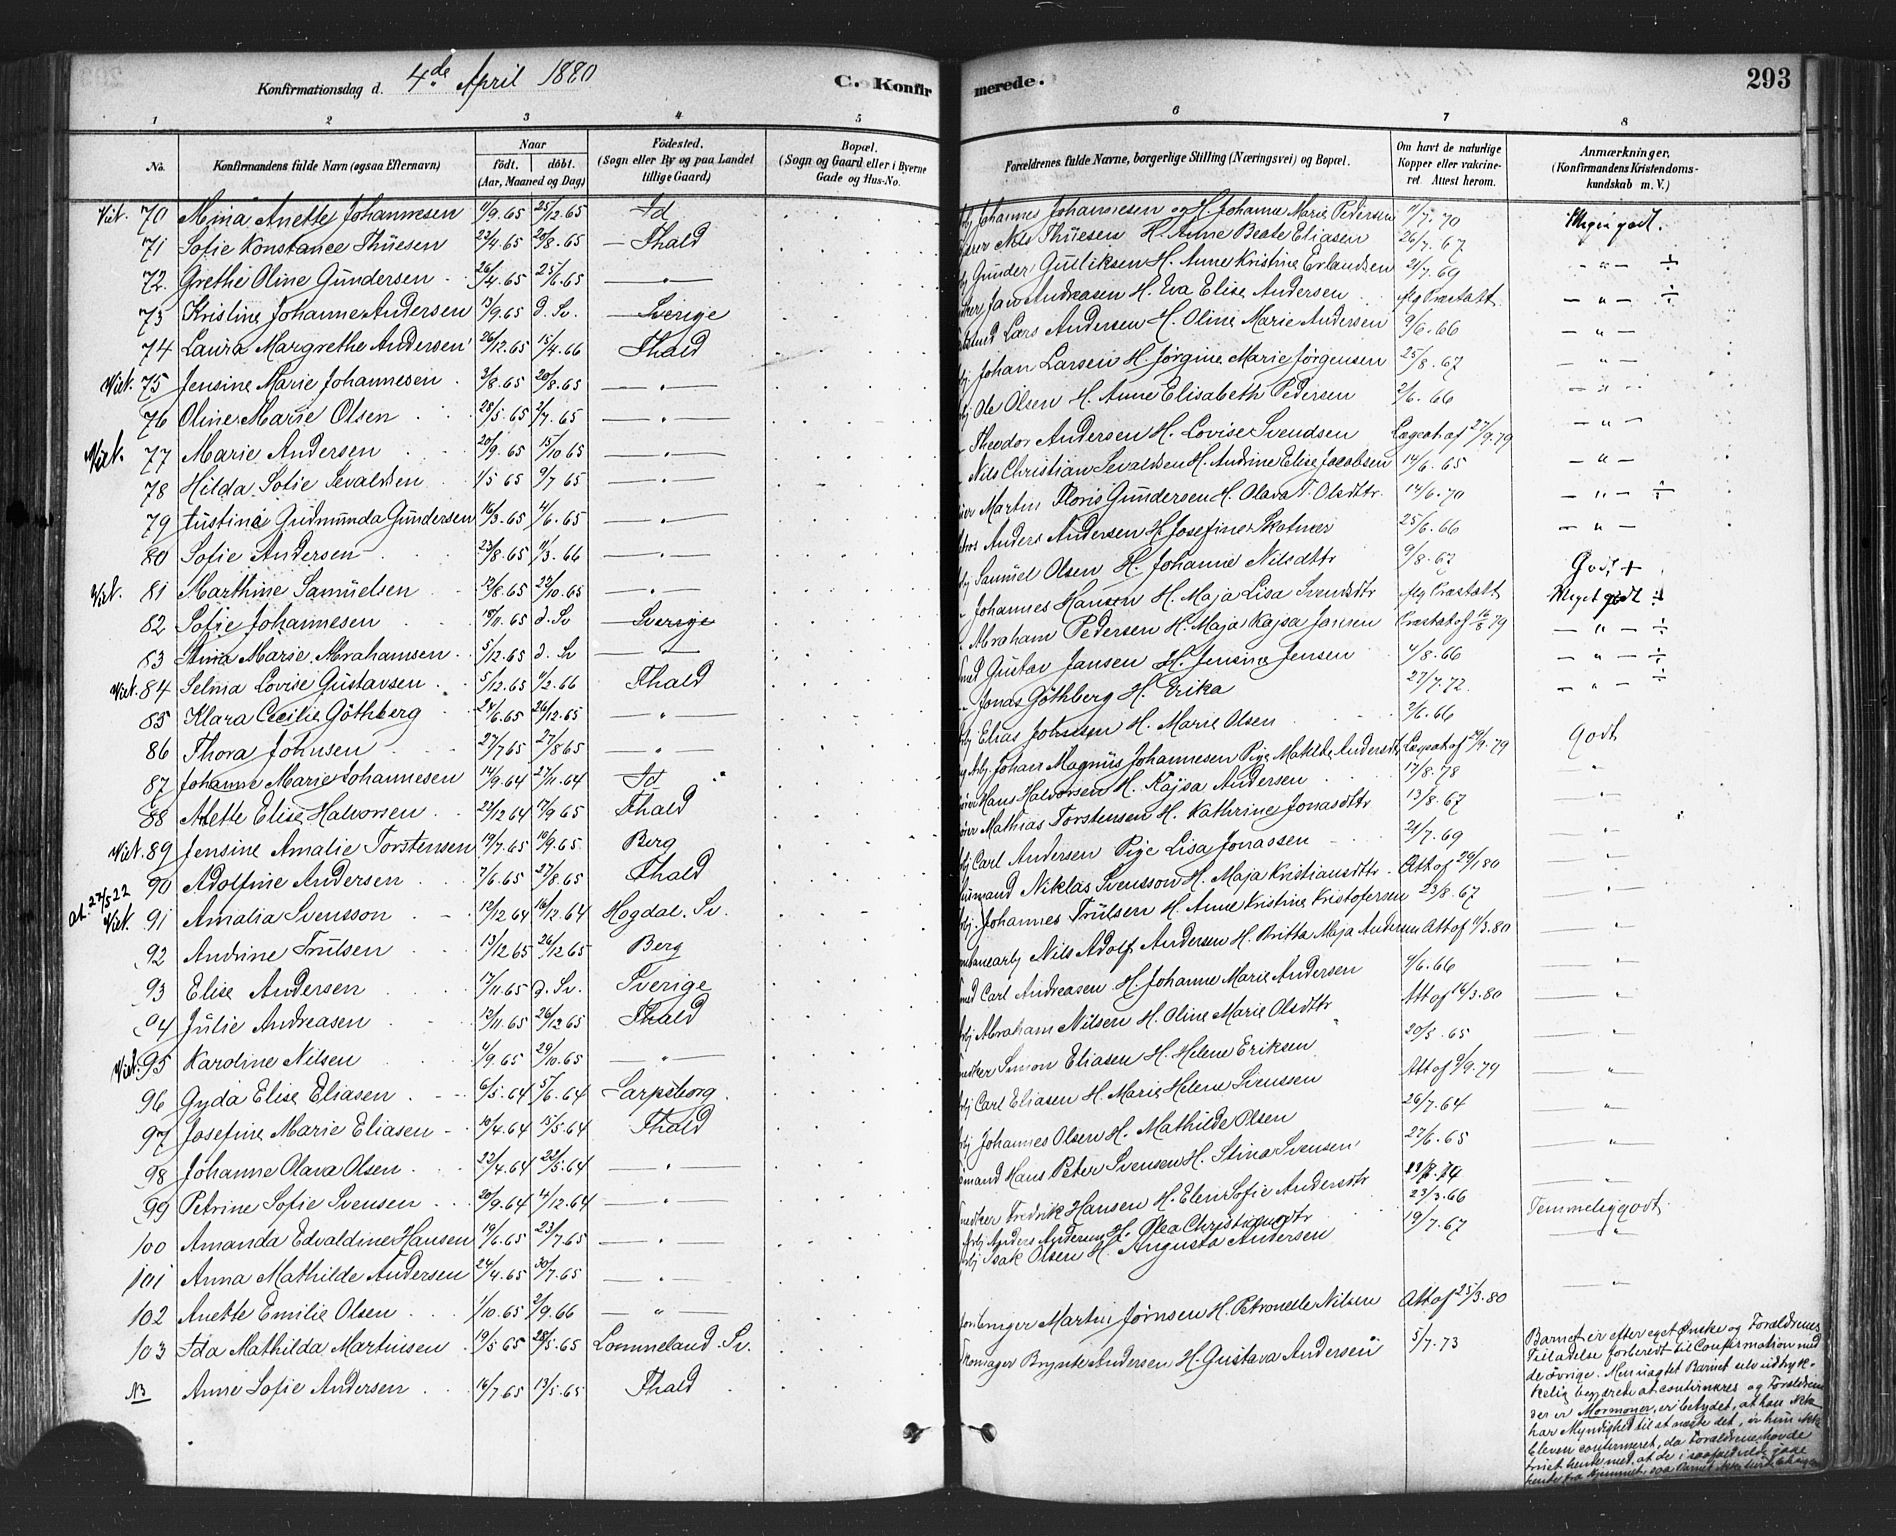 Konfirmationsdag d. 4de April 1880
C. Konfirmerede.
293
1 2 3 4 5 6 7 8
No. Konfirmandens fulde Navn (ogsaa Efternavn) Naar født. døbt. (Aar, Maaned og Dag) Fødested. (Sogn eller By og paa Landet tillige Gaard) Bopæl. (Sogn og Gaard eller i Byerne Gade og Hus-No.
Forældrenes fulde Navne, borgerlige Stilling (Næringsvei) og Bopæl. Om havt de naturlige Kopper eller vakcineret. Attest herom. Anmærkninger, (Konfirmandens Kristendomskundskab m. V.)
Viet. 70 Mina Anette Johannesen 11/9.65 25/12.65 Id
71 Sofie Konstance Thüesen 22/4.65 20/8.65 Fhald
72 Grethe Oline Gundersen 26/4.65 25/6.65 — " —
73 Kristine Johanne Andersen 13/9.65 d. Sv. Sverige
74 Laura Margrethe Andersen 26/12.65 15/4.66 Fhald
Viet. 75 Jensine Marie Johannesen 3/8.65 20/8.65 — " —
76 Oline Marie Olsen 28/5.65 2/7.65 — " —
Viet. 77 Marie Andersen 20/9.65 15/10 65 — " —
78 Hilda Sofie Sevaldsen 1/5 65 9/7 65 — " —
79 Justine Gudmunda Gundersen 16/3.65 4/6.65 — " —
80 Sofie Andersen 23/8.65 11/3.66 — " —
Viet. 81 Marthine Samuelsen 12/8.65 22/10.65 — " —
82 Sofie Johannesen 18/11.65 d. Sv Sverige
83 Stina Marie Abrahamsen 5/12.65 d. Sv — " —
Viet. 84 Selma Lovise Gustavsen 5/12.65 4/2.66 Fhald
85 Klara Cecilie Göthberg 24/6.65 26/12.65 — " —
86 Thora Johnsen 27/7.65 27/8 65 — " —
87 Johanne Marie Johannesen 14/9.64 27/11.64 Id
88 Anette Elise Halvorsen 22/12 64 17/9 65 Fhald
Viet. 89 Jensine Amalie Torstensen 19/7.65 10/9.65 Berg
90 Adolfine Andersen 7/6.65 27/8.65 Fhald
At. 27/5 22
Viet. 91 Amalia Svensson 12/12 64 16/12.64 Hogdal. Sv.
92 Andrine Trulsen 13/12 65 26/12 65 Berg
93 Elise Andersen 17/11.65 d. Sv. Sverige
94 Julie Andreasen 12/11.65 26/12 65 Fhald
Viet. 95 Karoline Nilsen 4/9.65 29/10.65 — " —
96 Gyda Elise Eliasen 6/5.64 5/6.64 Sarpsborg
97 Josefine Marie Eliasen 10/4.64 15/5.64 Fhald
98 Johanne Olava Olsen 22/4.64 22/5.64 — " —
99 Petrine Sofie Svensen 20/9.64 4/12.64 — " —
100 Amanda Edvaldine Hansen 19/6.65 23/7.65 — " —
101 Anna Mathilde Andersen 24/4.65 30/7.65 — " —
102 Anette Emilie Olsen 1/10.65 2/9.66 — " —
103 Ida Mathilda Martinsen 19/5 65 28/5.65 Lommeland. Sv.
NB Anne Sofie Andersen 14/7.65 13/5.65 Fhald
Johannes Johannesen og H. Johanne Marie Pedersen 11/7.70 Meget godt.
Nils Thüesen H. Anne Beate Eliasen 26/7.67
Gunder Gulliksen H. Anne Kristine Erlandsen 21/7.69 — " — ÷
Jan Andreasen H. Eva Elise Andersen Præstatt. — " — ÷
Lars Andersen H. Oline Marie Andersen 9/6.66 — " —
Johan Larsen H. Jørgine Marie Jørgensen 25/8.67 — " —
Ole Olsen H. Anne Elisabeth Pedersen 2/6.66 — " —
Theodor Andersen H. Lovise Svendsen Lægeat. af 27/9.79 — " —
Nils Christian Sevaldsen H. Andrine Elise Jacobsen 14/6.65 — " —
Martin Floris Gundersen H. Olava T. Olsdttr. 14/6.70 — " — ÷
Anders Andersen H. Josefine Skotner 25/6.66 — " —
Samuel Olsen H. Johanne Nilsdttr 9/8.62 Godt +
Johannes Hansen H. Maja Lisa Svendsdtr Præstatt Meget godt ÷
Abraham Pedersen H. Maja Kajsa Jansen Præstat. af 16/8 79 — " — ÷
Gustav Jansen H. Jensine Jensen 4/8.66 — " — ÷
Jonas Göthberg H. Erika 27/7.72. — " — ÷
Elias Johnsen H. Marie Olsen 2/6.66
Johan Magnus Johannesen Pige Matilde Andersdtr Lægeat af 24/9.79 Godt
Hans Halvorsen H. Kajsa Andersen 17/8.78 "
Mathias Torstensen H. Kathrine Jonasdtr 13/8.67
Carl Andersen Pige Lisa Jonassen 21/7.69 — " —
Niklas Svensson H. Maja Kristiansdttr. Att af 29/1 80 — " —
Johannes Trulsen H. Anne Kristine Kristofersen 23/8.67 — " —
Nils Adolf Andersen H. Britta Maja Andersen Att af 11/3.80 — " —
Carl Andreasen H. Johanne Marie Andersen 4/6.66 — " —
Abraham Nilsen H. Oline Marie Olsdttr Att af 14/3.80 — " —
Simon Eliasen H. Helene Eriksen 20/5.65 — " —
Carl Eliasen H. Marie Helene Svensen Att af 9/9.79 — " —
Johannes Olsen H. Mathilde Olsen 26/7.64 — " —
Hans Peter Svensen H. Stina Svensen 27/6.65 — " —
Fredrik Hansen H. Elen Sofie Andersdtr — " —
Anders Andersen H. Olea Christiansdtr 23/3.66 Temmelig godt
Isak Olsen H. Augusta Andersen 19/7.67 — " —
Martin Jørnsen H. Petronelle Nilsen Att af 25/3.80 — " —
Brynte Andersen H. Gustava Andersen 5/7.73
Barnet er efter eget Ønske og Forældrenes
Tilladelse forberedt til Confirmation med
de øvrige. Men uagtet Barnet selv udtrykkelig
begjærede at confirmeres og Forældrene
der er Mormoner, er betydet, at han ikke
har Myndighed til at nægte det, er hun ikke
bleven confirmeret, da Forældrene havde
truet hende med, at de i saafald vilde jage
hende fra Hjemmet,